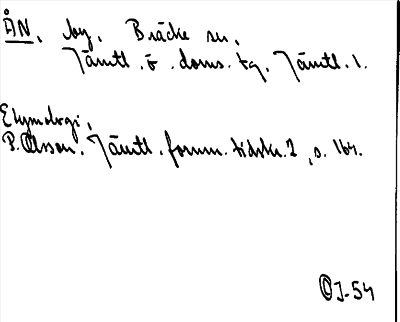 ÅN. by. Bräcke sn.
Jämtl. ö. doms. tg. Jämtl. l.
Etymologi.
P. Olsson. Jämtl. fornm. tidskr. 2, s. 164.
OJ-54